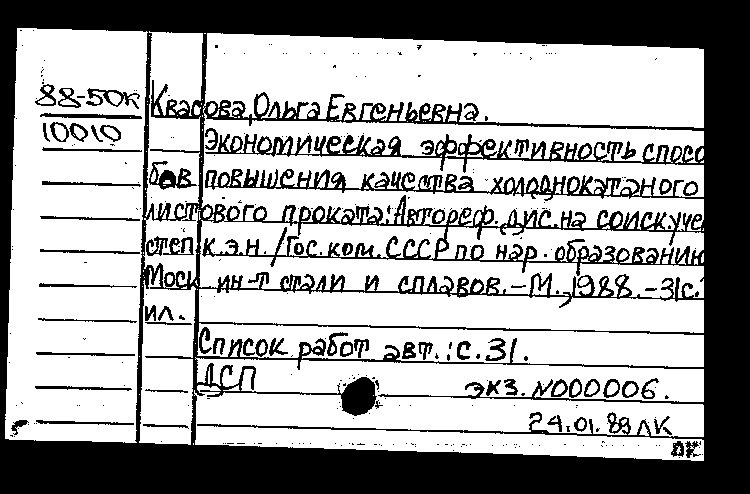 88-50к Квасова, Ольга Евгеньевна.
10010 Экономическая эффективность спосо
бов повышения качества холоднокатаного
листового проката: Автореф. дис. на соиск. уче
степ. к.э.н. / Гос. ком. СССР по нар. образованию
Моск ин-т стали и сплавов. – М., 1988. – 31с.
ил.
Список работ авт.: с. 31.
ДСП экз. N000006.
24.01.89 ЛК
ПК